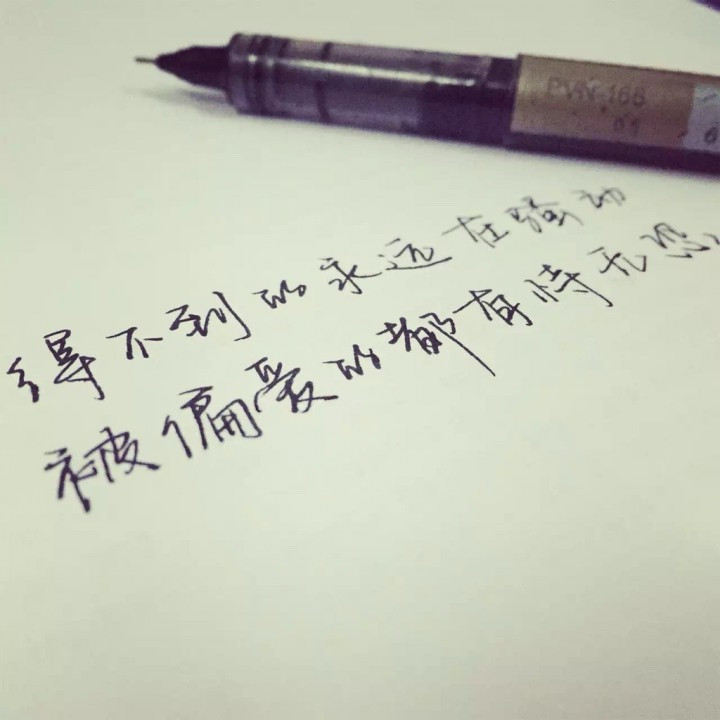 PVN-166
0.5
6
得不到的永远在骚动
被偏爱的都有恃无恐